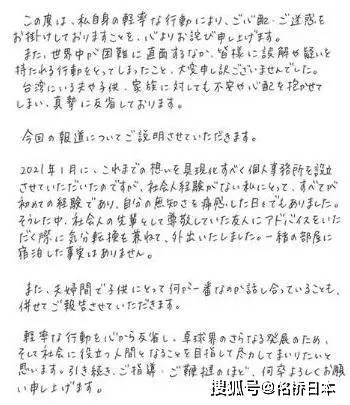 この度は、私自身の軽率な行動により、ご心配・ご迷惑を
お掛けしておりますことを、心よりお詫び申し上げます。
また、世界中が困難に直面するなか、皆様に誤解や疑いを
持たれる行動をとってしまったこと、大変申し訳ございませんでした。
台湾にいる夫や子供、家族に対しても不安や心配を抱かせて
しまい、真摯に反省しております。
今回の報道についてご説明させていただきます。
2021年1月に、これまでの想いを具現化すべく個人事務所を設立
させていただいたのですが、社会人経験がない私にとって、すべてが
初めての経験であり、自分の無知さを痛感した日々でもありました。
そうした中、社会人の先輩として尊敬していた友人にアドバイスをいた
だく際に気分転換を兼ねて、外出いたしました。一緒の部屋に
宿泊した事実はありません。
また、夫婦間で子供にとって何が一番なのか話し合っていることも、
併せてご報告させていただきます。
軽率な行動を心から反省し、卓球界のさらなる発展のため、
そして社会に役立つ人間となることを目指して尽力してまいりたいと
思います。引き続き、ご指導・ご鞭撻のほど、何卒よろしくお願
い申し上げます。
搜狐号@铭侨日本